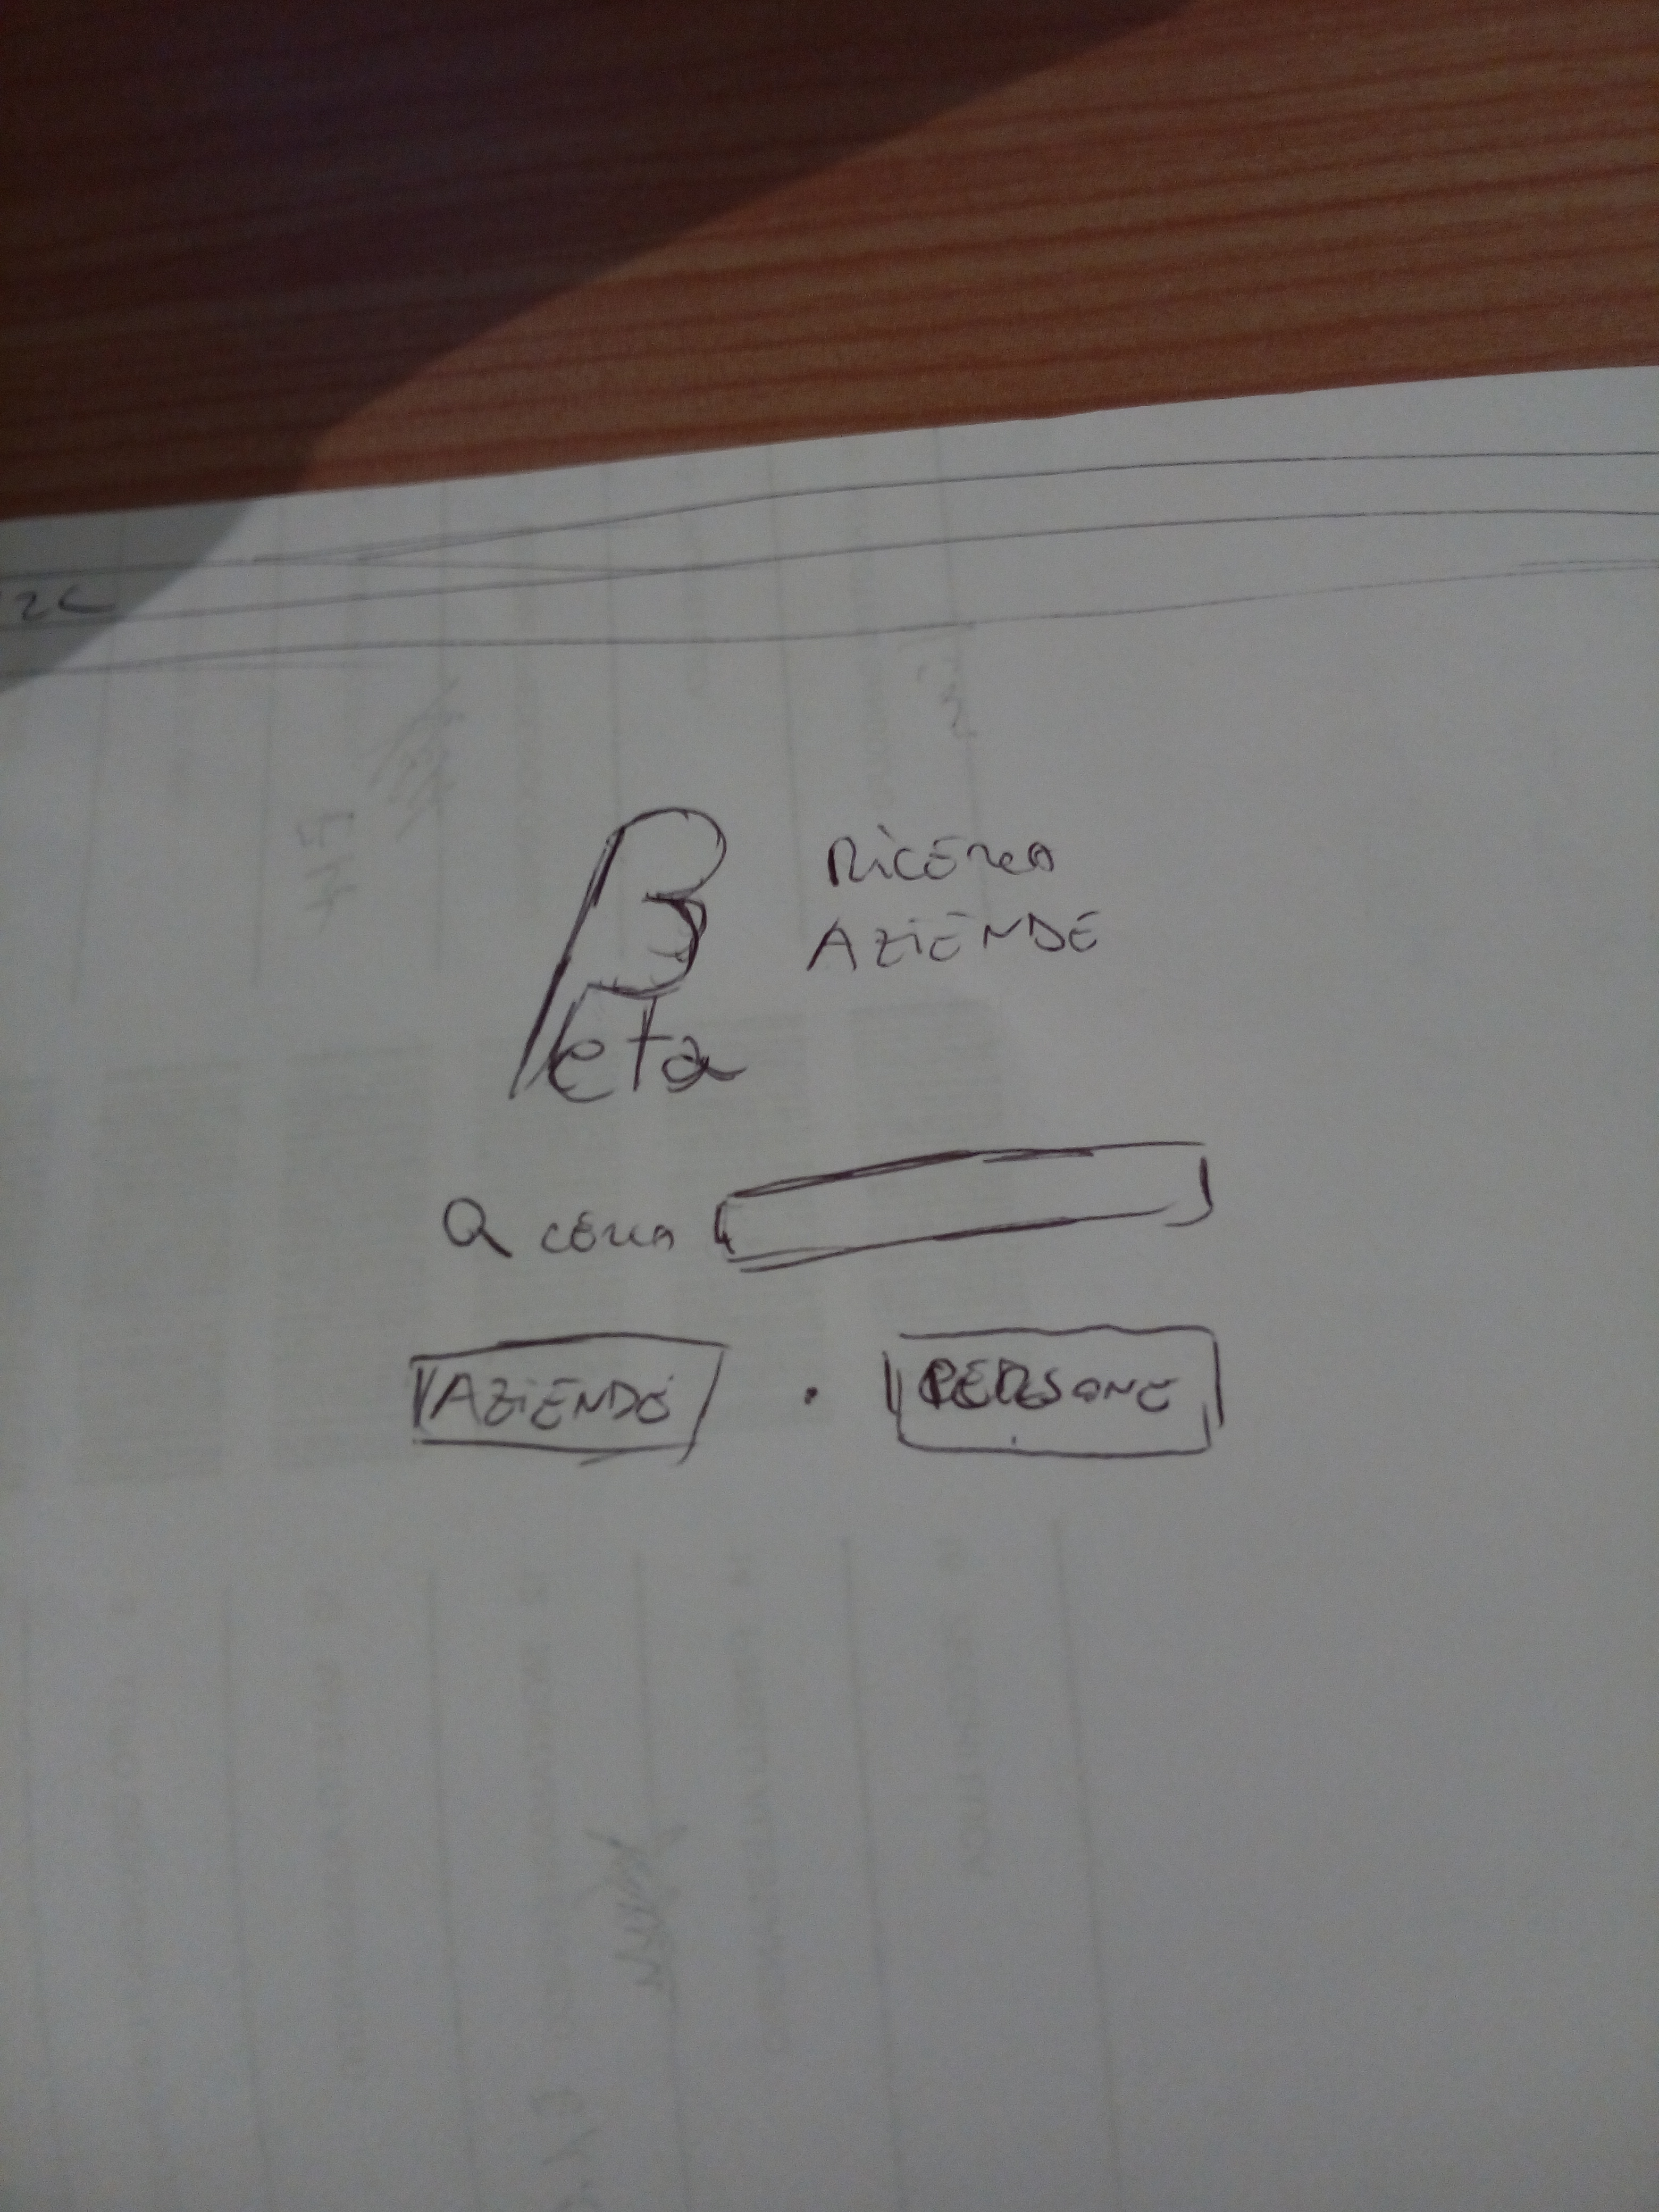 βeta
RICERCA
AZIENDE
CERCA
AZIENDE · PERSONE